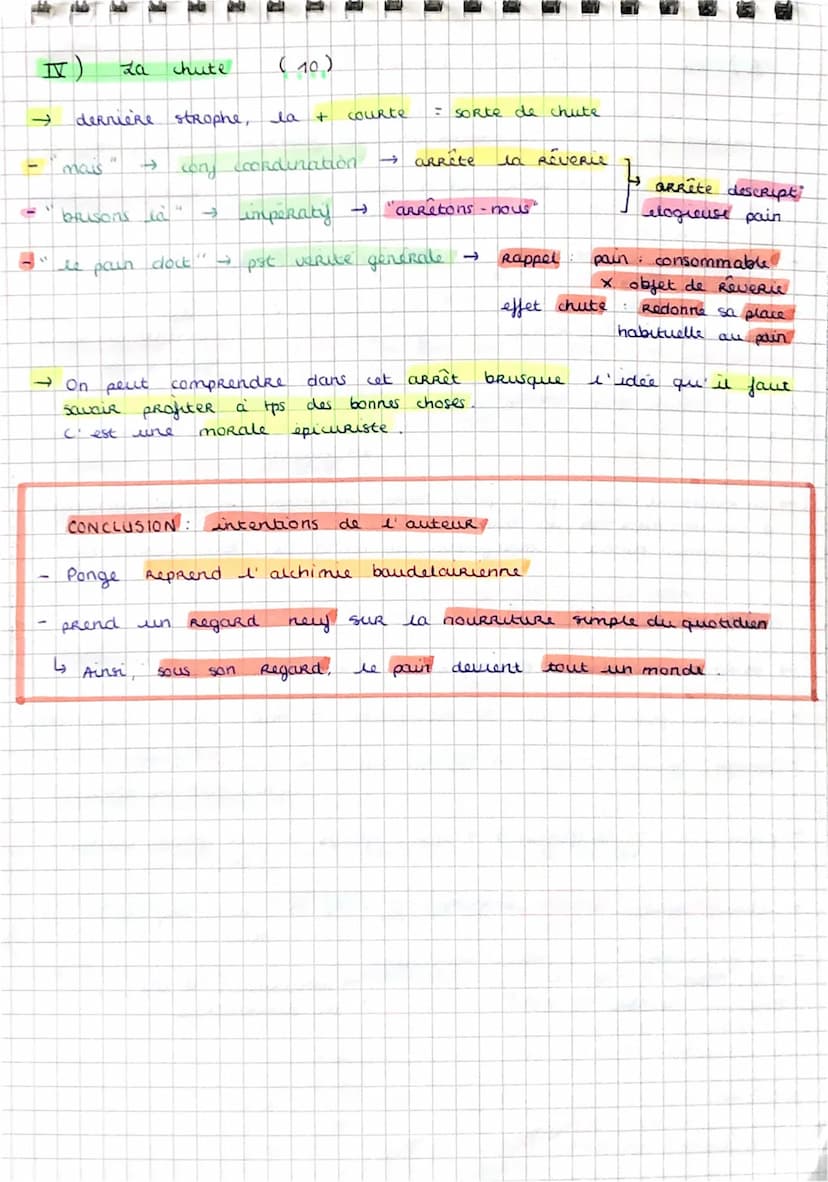 IV) La chute (10)
→ dernière strophe, la + courte = sorte de chute
- "mais" → conj coordination → arrête la rêverie
↳ arrête descript°
- "brisons là" → impératif → "arrêtons-nous"
élogieuse pain
- "le pain doit" → pst vérité générale → Rappel : pain : consommable
x objet de rêverie
effet chute : Redonne sa place
habituelle au pain
→ On peut comprendre dans cet arrêt brusque l'idée qu'il faut
savoir profiter à tps des bonnes choses.
C'est une morale épicuriste.
CONCLUSION : intentions de l'auteur
- Ponge reprend l'alchimie baudelairienne
- prend un regard neuf sur la nourriture simple du quotidien
↳ Ainsi, sous son regard, le pain devient tout un monde.